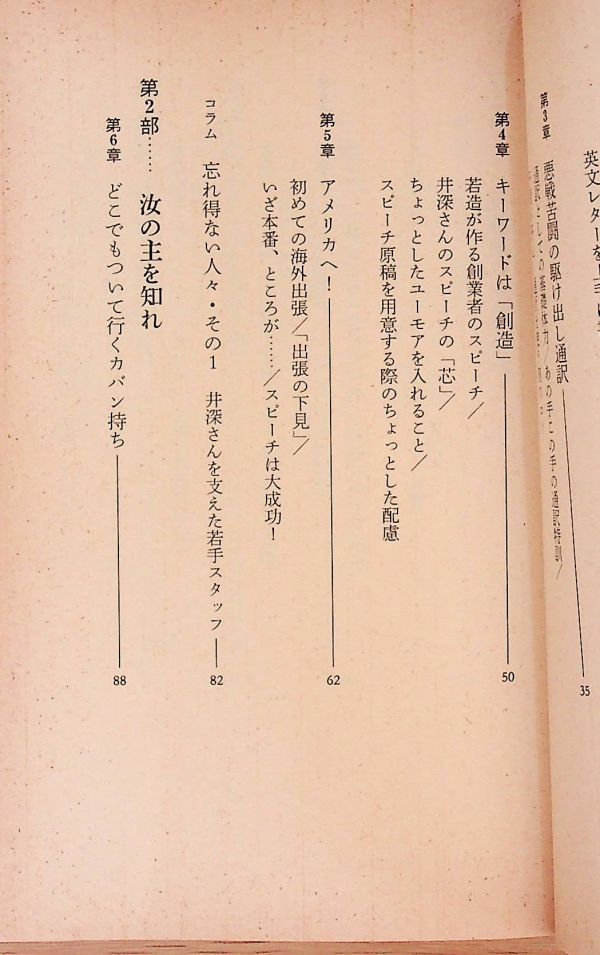 英文レターを
第3章 悪戦苦闘の駆け出し通訳
あの手この手の通訳特訓／
35
第4章 キーワードは「創造」 50
若造が作る創業者のスピーチ／
井深さんのスピーチの「芯」／
ちょっとしたユーモアを入れること／
スピーチ原稿を用意する際のちょっとした配慮
第5章 アメリカへ！ 62
初めての海外出張／「出張の下見」／
いざ本番、ところが……／スピーチは大成功！
コラム 忘れ得ない人々・その1 井深さんを支えた若手スタッフ 82
第2部…… 汝の主を知れ
第6章 どこでもついて行くカバン持ち 88